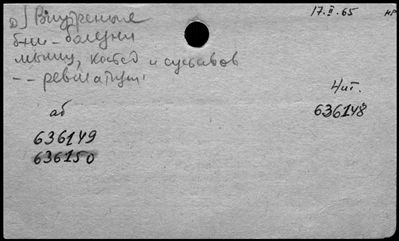 а) Внутренные
б-ни – болезни
мышц, костей и суставов
– – ревматизм
17.II.65
нг
Чит.
636148
аб
636149
636150